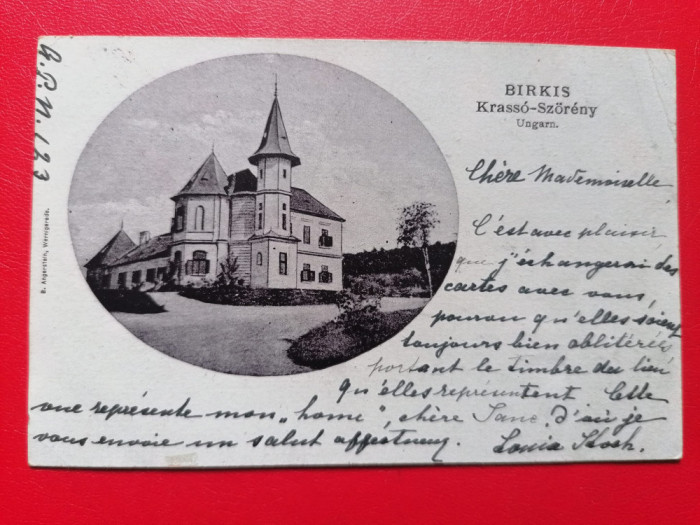 BIRKIS
Krassó-Szörény
Ungarn.
B. Angerstein, Wernigerode.
Chère Mademoiselle
C'est avec plaisir
que j'échangerai des
cartes avec vous,
pourvu qu'elles soient
toujours bien oblitérées
portant le timbre du lieu
qu'elles représentent Cette
vue représente mon „home", chère d'où je
vous envoie un salut affectueux.